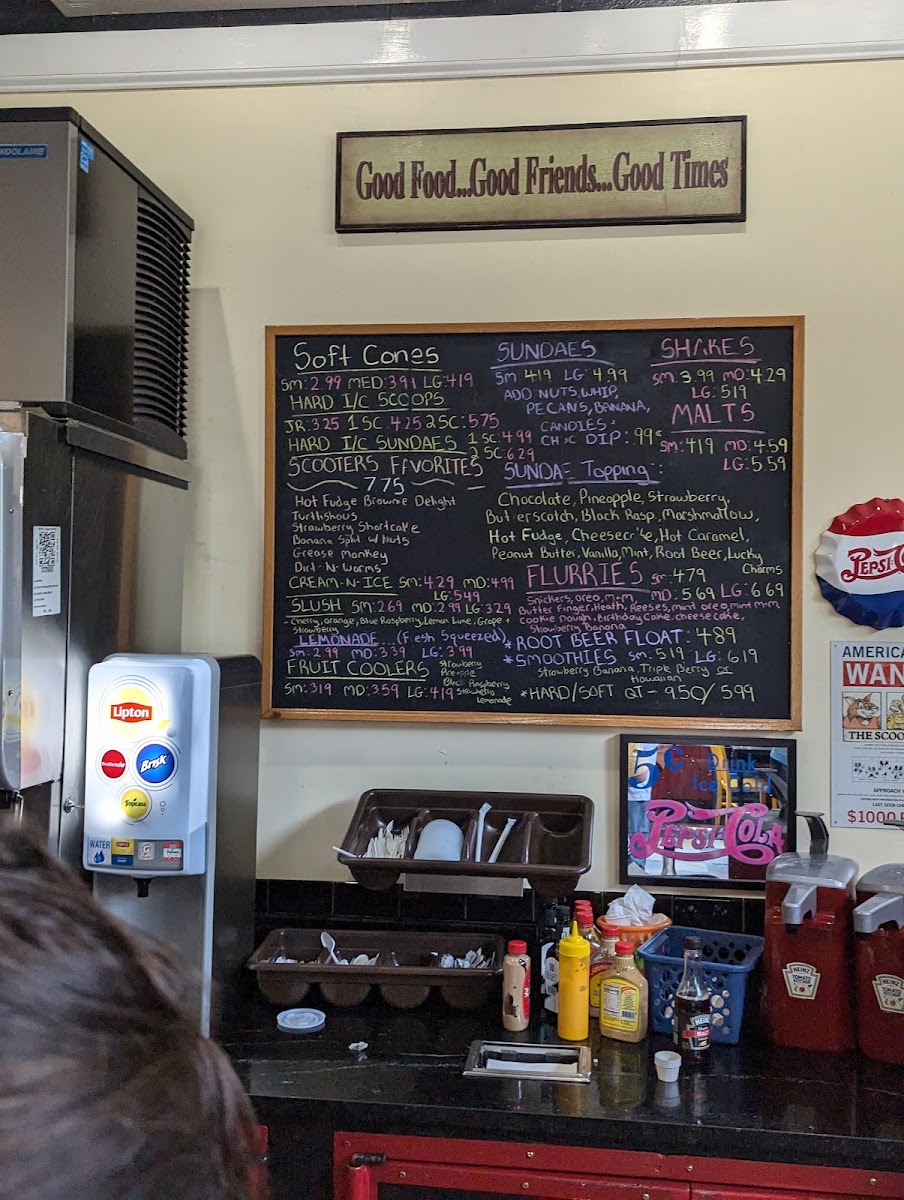 KOOLAIRE
Good Food...Good Friends...Good Times
Soft Cones
Sm: 2.99 MED: 3.99 LG: 4.19
HARD I/C SCOOPS
JR: 3.25 1 SC. 4.25 2 SC: 5.75
HARD I/C SUNDAES 1 SC: 4.99
2 SC: 6.29
SCOOTERS FAVORITES
7.75
Hot Fudge Brownie Delight
Turtlishous
Strawberry Shortcake
Banana Split w/ Nuts
Grease Monkey
Dirt-N-Worms
CREAM-N-ICE Sm: 4.29 MD: 4.99
LG: 5.49
SLUSH SM: 2.69 MD: 2.99 LG 3.29
Cherry, orange, Blue Raspberry, Lemon Lime, Grape +
Strawberry
LEMONADE...(F esh Squeezed)
Sm: 2.99 MD: 3.39 LG: 3.99
FRUIT COOLERS
Strawberry
Pineapple
Black Raspberry
Strawberry
Lemonade
Sm: 3.19 MD: 3.59 LG: 4.19
SUNDAES
Sm 4.19 LG: 4.99
ADD NUTS, WHIP,
PECANS, BANANA,
CANDIES +
CHOC DIP: .99¢
SHAKES
Sm: 3.99 MD: 4.29
LG: 5.19
MALTS
Sm: 4.19 MD: 4.59
LG: 5.59
SUNDAE Topping:
Chocolate, Pineapple, Strawberry,
Butterscotch, Black Rasp., Marshmallow,
Hot Fudge, Cheesecake, Hot Caramel,
Peanut Butter, Vanilla, Mint, Root Beer, Lucky
Charms
FLURRIES Sm: 4.79
MD: 5.69 LG: 6.69
Snickers, oreo, m+m
Butter Finger, Heath, Reeses, mint oreo, mint m+m
cookie Dough, Birthday Cake, cheese cake,
Strawberry Banana
*ROOT BEER FLOAT: 4.89
*SMOOTHIES Sm: 5.19 LG: 6.19
Strawberry Banana, Triple Berry or
Hawaiian
*HARD/SOFT QT - 9.50/5.99
PEPSI-C
AMERICA
WAN
THE SCOO
APPROACH
LAST SEEN
$1000
5¢ Drink
Ice Cold
PEPSI-COLA
Lipton
Brisk
Tropicana
WATER
Lipton
HEINZ
TOMATO
KETCHUP
HEINZ
TOMATO
KETCHUP
HEINZ
MALT